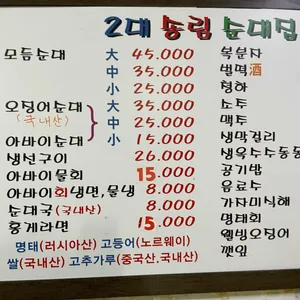 2대 송림 순대집
모듬순대 大 45.000 복분자
中 35.000 벌떡酒
小 25.000 청하
오징어순대 大 35.000 소주
(국내산) 中 25.000 맥주
아바이순대 小 15.000 생막걸리
생선구이 26.000 생옥수수동동
아바이물회 15.000 공기밥
아바이회냉면,물냉 8.000 음료수
순대국(국내산) 8.000 가자미식해
홍게라면 15.000 명태회
명태(러시아산) 고등어(노르웨이) 웰빙오징어
쌀(국내산) 고추가루(중국산.국내산) 깻잎